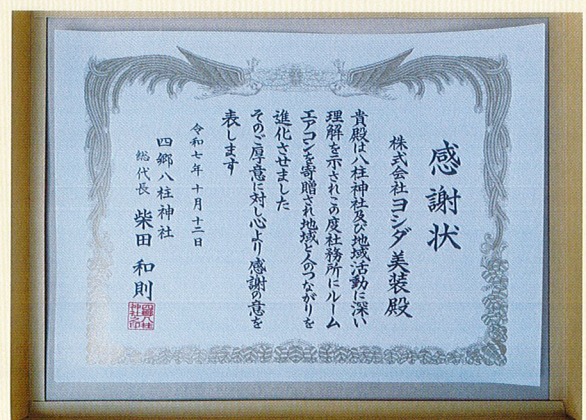 感謝状
株式会社ヨシダ美装殿
貴殿は八柱神社及び地域活動に深い
理解を示されこの度社務所にルーム
エアコンを寄贈され地域と人のつながりを
進化させました
そのご厚意に対し心より感謝の意を
表します
令和七年十月十二日
四郷八柱神社
総代長 柴田和則
四郷八柱
神社之印